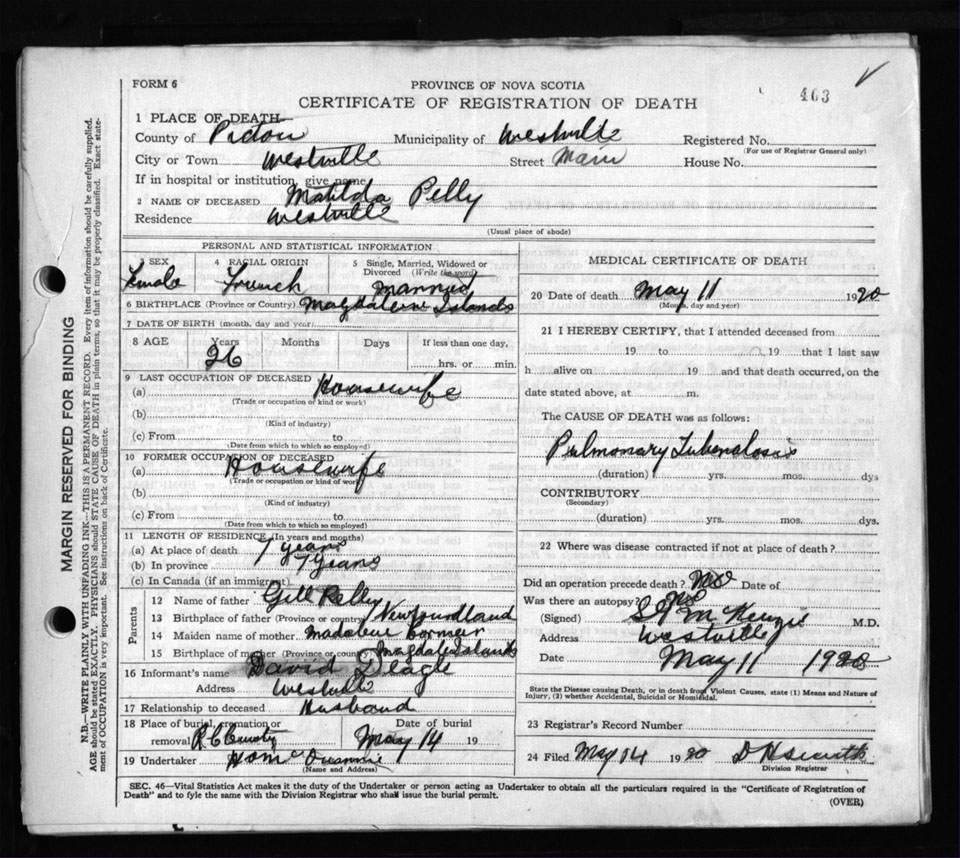 FORM 6
PROVINCE OF NOVA SCOTIA
CERTIFICATE OF REGISTRATION OF DEATH
463
1 PLACE OF DEATH
County of Pictou Municipality of Westville Registered No.
(For use of Registrar General only)
City or Town Westville Street Main House No.
If in hospital or institution, give name
2 NAME OF DECEASED Matilda Pelly
Residence Westville
(Usual place of abode)
PERSONAL AND STATISTICAL INFORMATION
3 SEX 4 RACIAL ORIGIN 5 Single, Married, Widowed or Divorced (Write the word)
Female French Married
6 BIRTHPLACE (Province or Country) Magdalene Islands
7 DATE OF BIRTH (month, day and year)
8 AGE Years Months Days If less than one day,
26 hrs. or min.
9 LAST OCCUPATION OF DECEASED
(a) Housewife
(Trade or occupation or kind or work)
(b)
(Kind of industry)
(c) From to
(Date from which to which so employed)
10 FORMER OCCUPATION OF DECEASED
(a) Housewife
(Trade or occupation or kind of work)
(b)
(Kind of industry)
(c) From to
(Date from which to which so employed)
11 LENGTH OF RESIDENCE (In years and months)
(a) At place of death 7 years
(b) In province 7 years
(c) In Canada (if an immigrant)
Parents
12 Name of father Gill Pelly
13 Birthplace of father (Province or country) Newfoundland
14 Maiden name of mother Madalene Cormier
15 Birthplace of mother (Province or country) Magdalen Islands
16 Informant's name David Deagle
Address Westville
17 Relationship to deceased Husband
18 Place of burial, cremation or removal R C Date of burial May 14 19
19 Undertaker
(Name and Address)
MEDICAL CERTIFICATE OF DEATH
20 Date of death May 11 1920
(Month, day and year)
21 I HEREBY CERTIFY, that I attended deceased from
19 to 19 that I last saw
h alive on 19 and that death occurred, on the
date stated above, at m.
The CAUSE OF DEATH was as follows:
Pulmonary Tuberculosis
(duration) yrs. mos. dys
CONTRIBUTORY
(Secondary)
(duration) yrs. mos. dys.
22 Where was disease contracted if not at place of death?
Did an operation precede death? No Date of
Was there an autopsy? No
(Signed) McKenzie M.D.
Address Westville
Date May 11 1920
State the Disease causing Death, or in death from Violent Causes, state (1) Means and Nature of
Injury, (2) whether Accidental, Suicidal or Homicidal.
23 Registrar's Record Number
24 Filed May 14 1920
Division Registrar
SEC. 46—Vital Statistics Act makes it the duty of the Undertaker or person acting as Undertaker to obtain all the particulars required in the "Certificate of Registration of
Death" and to fyle the same with the Division Registrar who shall issue the burial permit.
(OVER)
MARGIN RESERVED FOR BINDING
N.B.—WRITE PLAINLY WITH UNFADING INK—THIS IS A PERMANENT RECORD. Every item of information should be carefully supplied.
AGE should be stated EXACTLY. PHYSICIANS should STATE CAUSE OF DEATH in plain terms, so that it may be properly classified. Exact statement of OCCUPATION is very important. See instructions on back of Certificate.